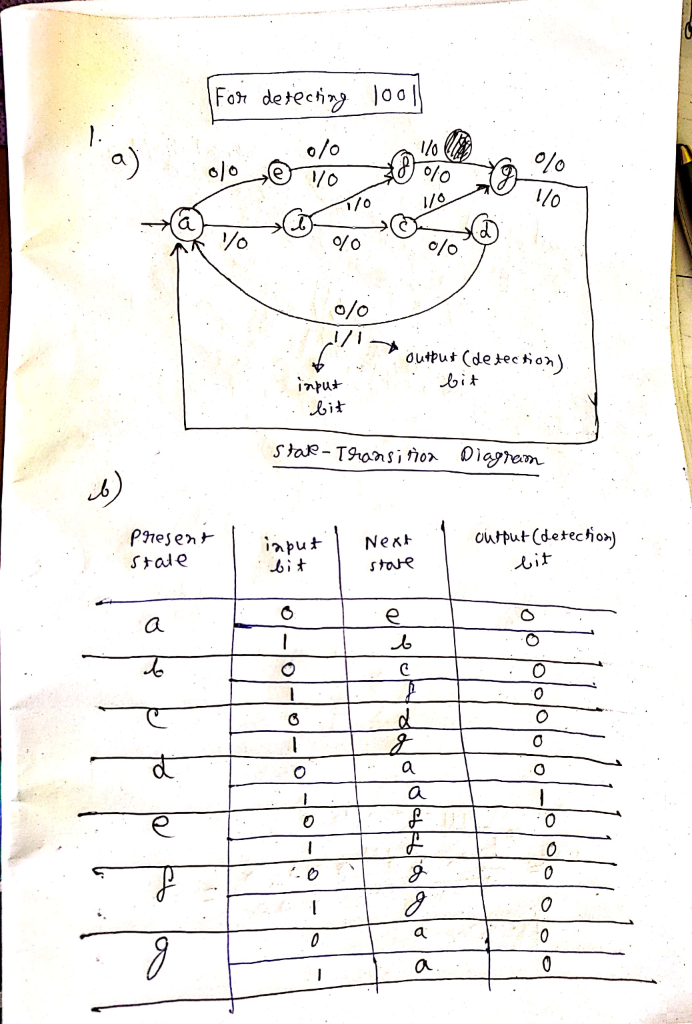 For detecting 1001
1.
a)
0/0 e 0/0 1/0 f 1/0 0/0 g 0/0 1/0
a 1/0 b 1/0 0/0 c 1/0 0/0 d
0/0
1/1
input bit
output (detection) bit
State-Transition Diagram
b)
Present state input bit Next state output (detection) bit
a 0 e 0
1 b 0
b 0 c 0
1 f 0
c 0 d 0
1 g 0
d 0 a 0
1 a 1
e 0 f 0
1 f 0
f 0 g 0
1 g 0
g 0 a 0
1 a 0